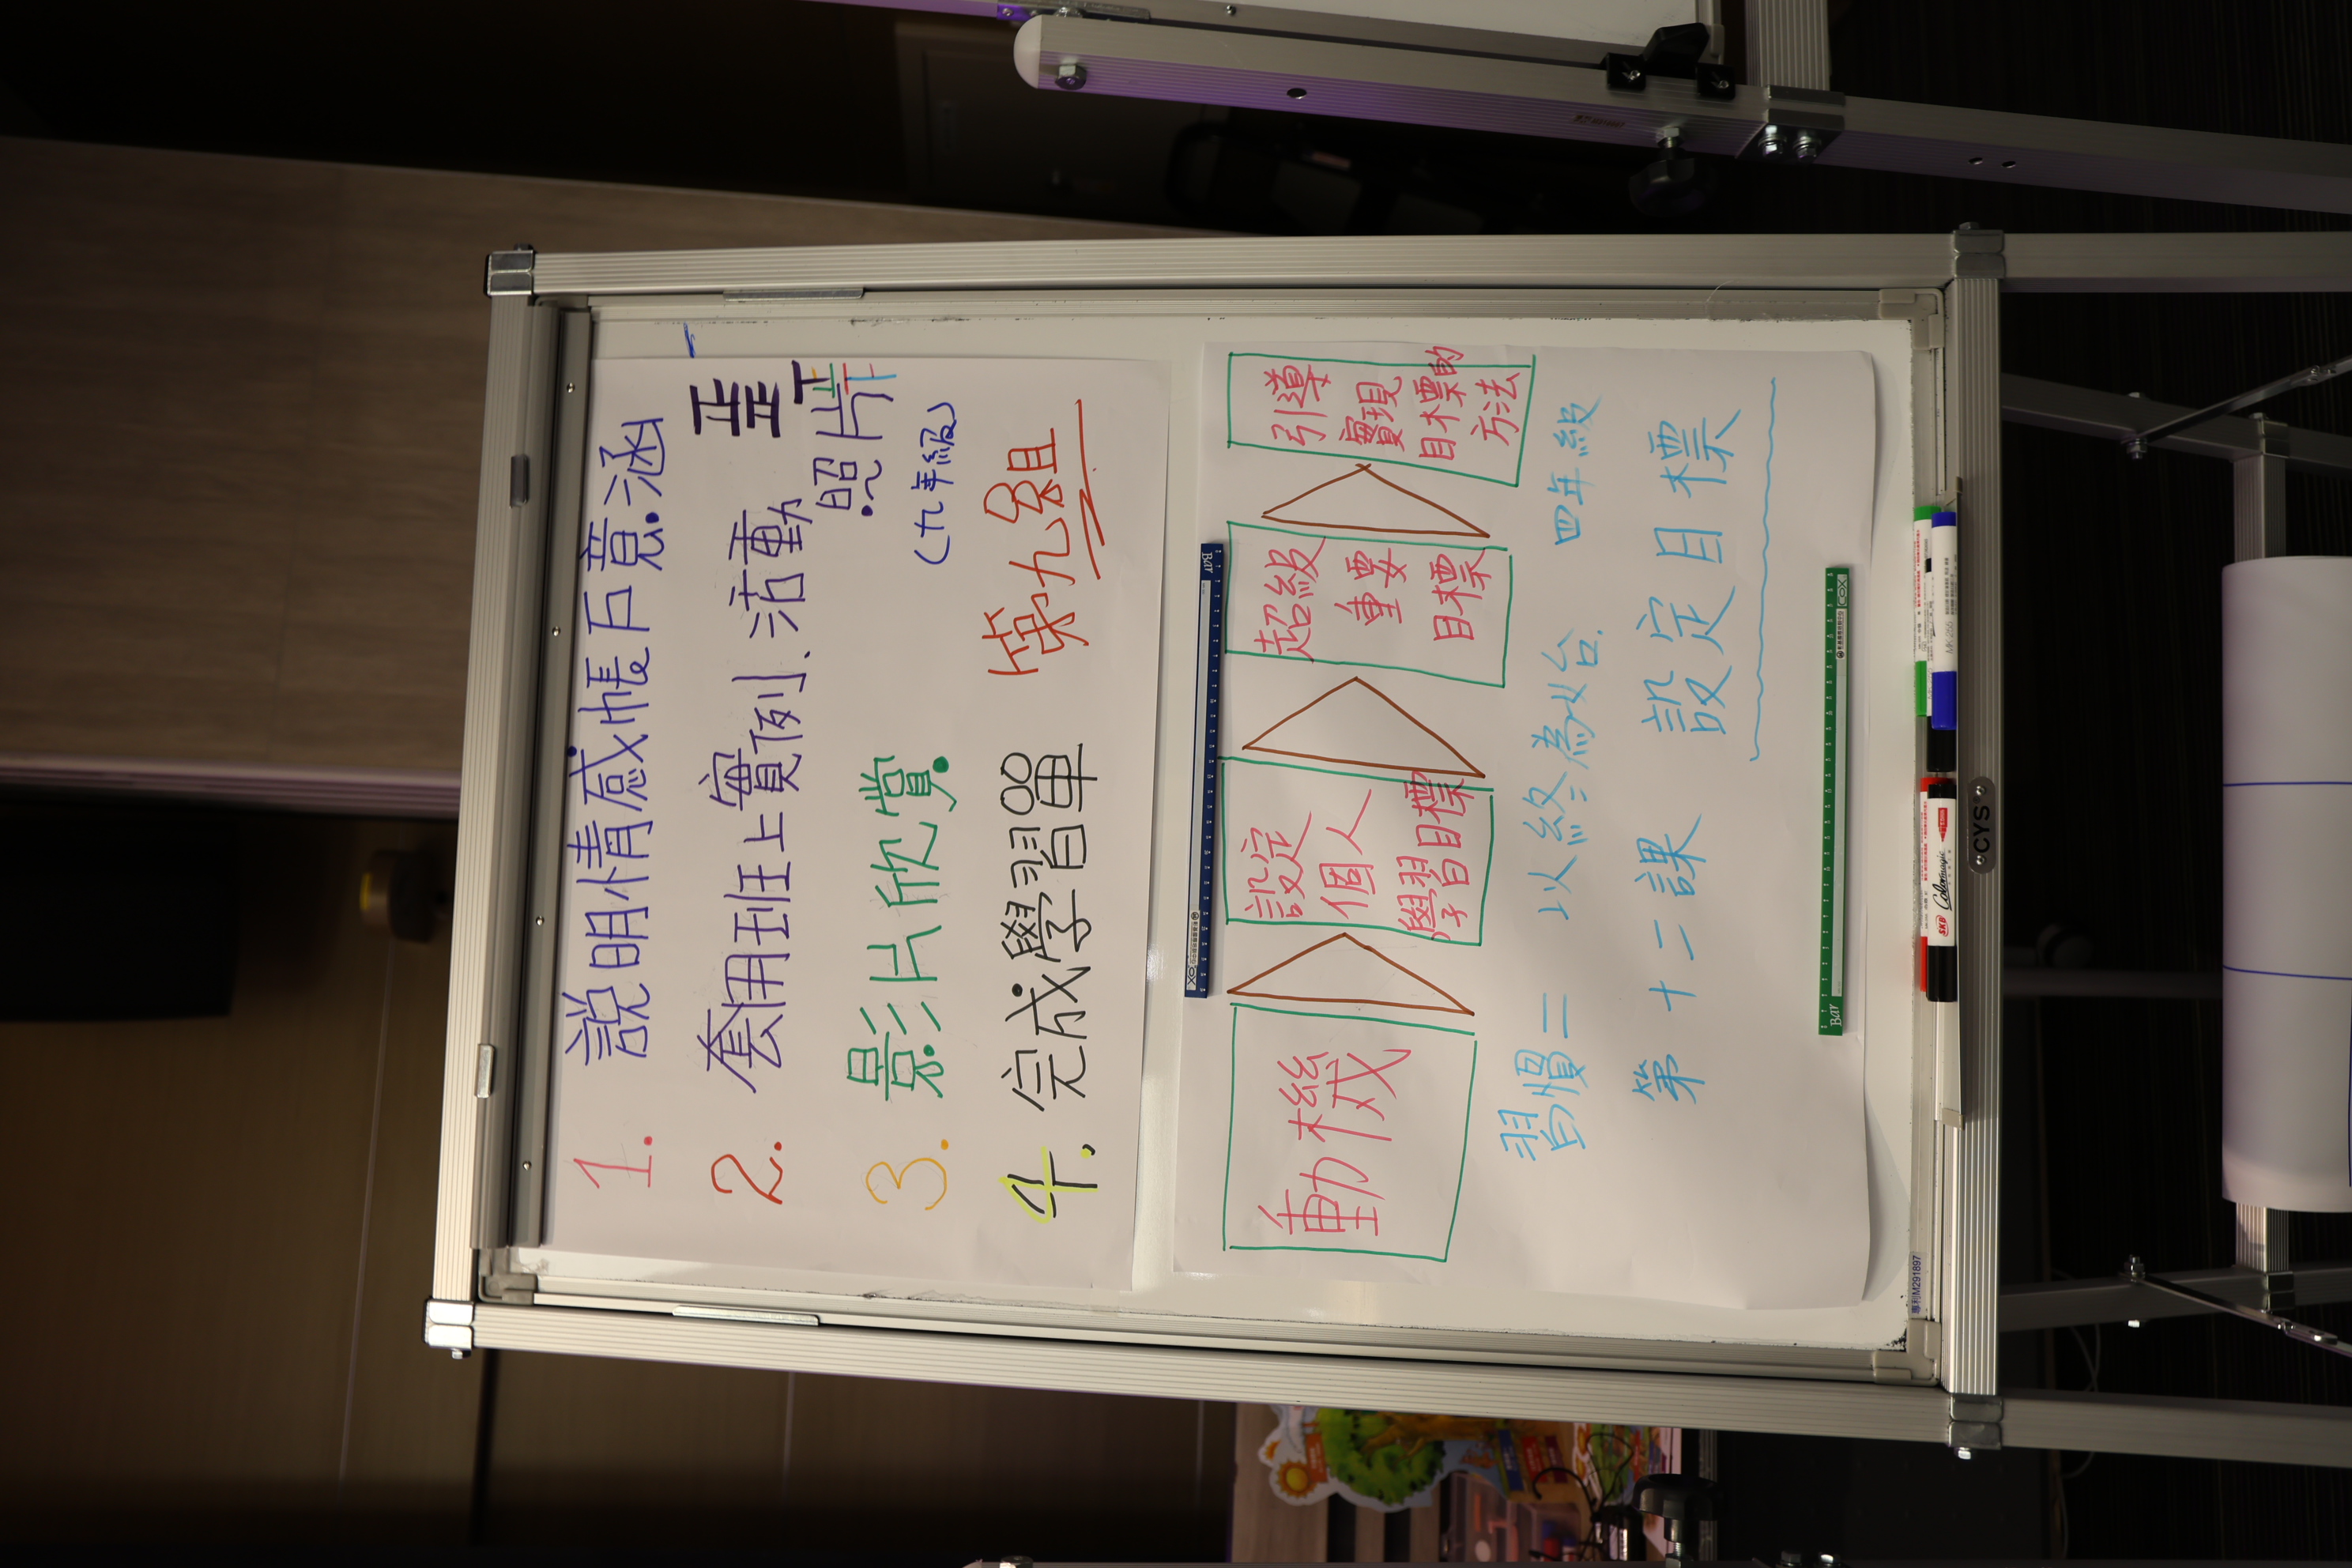 1. 說明情感帳戶意涵
正正
2. 套用班上實例、活動
照片
3. 影片欣賞
(九年級)
4. 完成學習單 第九組
動機
設定
個人
學習目標
超級
重要
目標
引導
實現
目標的
方法
習慣二 以終為始 四年級
第十二課 設定目標
SKB Colormagic
CYS
專利M291897